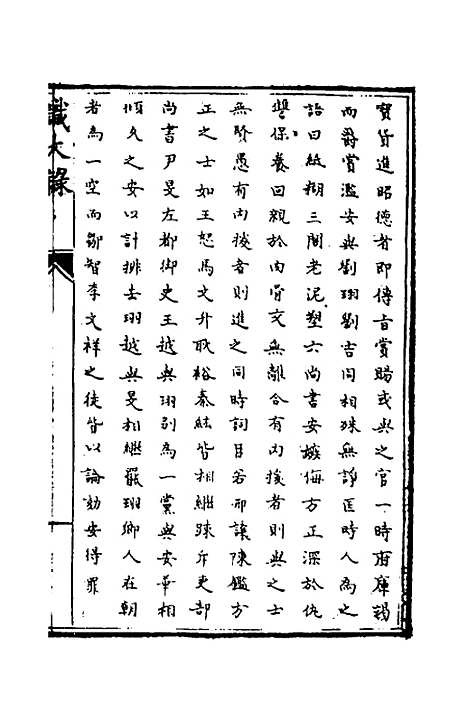 寳貨進昭德者即傳旨賞賜或與之官一時府庫竭
而爵賞濫安與劉珝劉吉同相殊無諍匡時人為之
語曰紙糊三閣老泥塑六尚書安嫉侮方正深於仇
讐保養回親於肉骨交無離合有内援者則與之士
無賢愚有内援者則進之同時詞目若邢讓陳鑑方
正之士如王恕馬文升耿裕秦紘皆相繼踈斥吏部
尚書尹旻左都御史王越與珝别為一黨與安華相
傾久之安以計排去珝越與旻相繼罷珝鄉人在朝
者為一空而鄒智李文祥之徒皆以論劾安得罪
識大錄